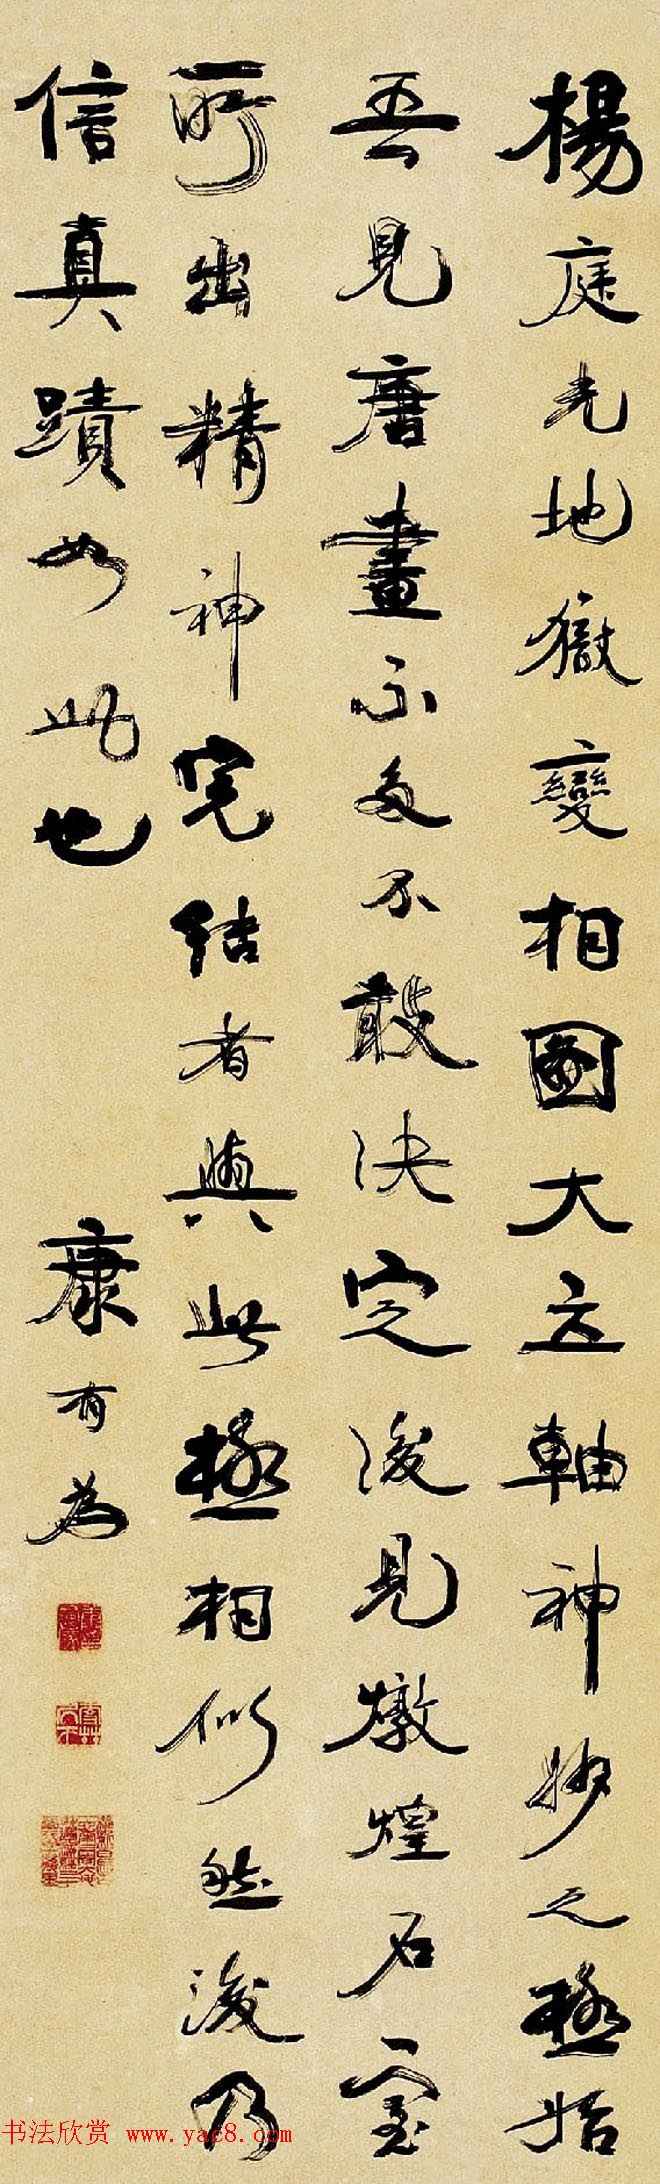 楊庭光地獄變相圖大立軸神妙之極始
吾見唐畫不多不敢決定後見燉煌石室
所出精神完結者與此極相似然後乃
信真蹟如此也
康有為
书法欣赏 www.yac8.com